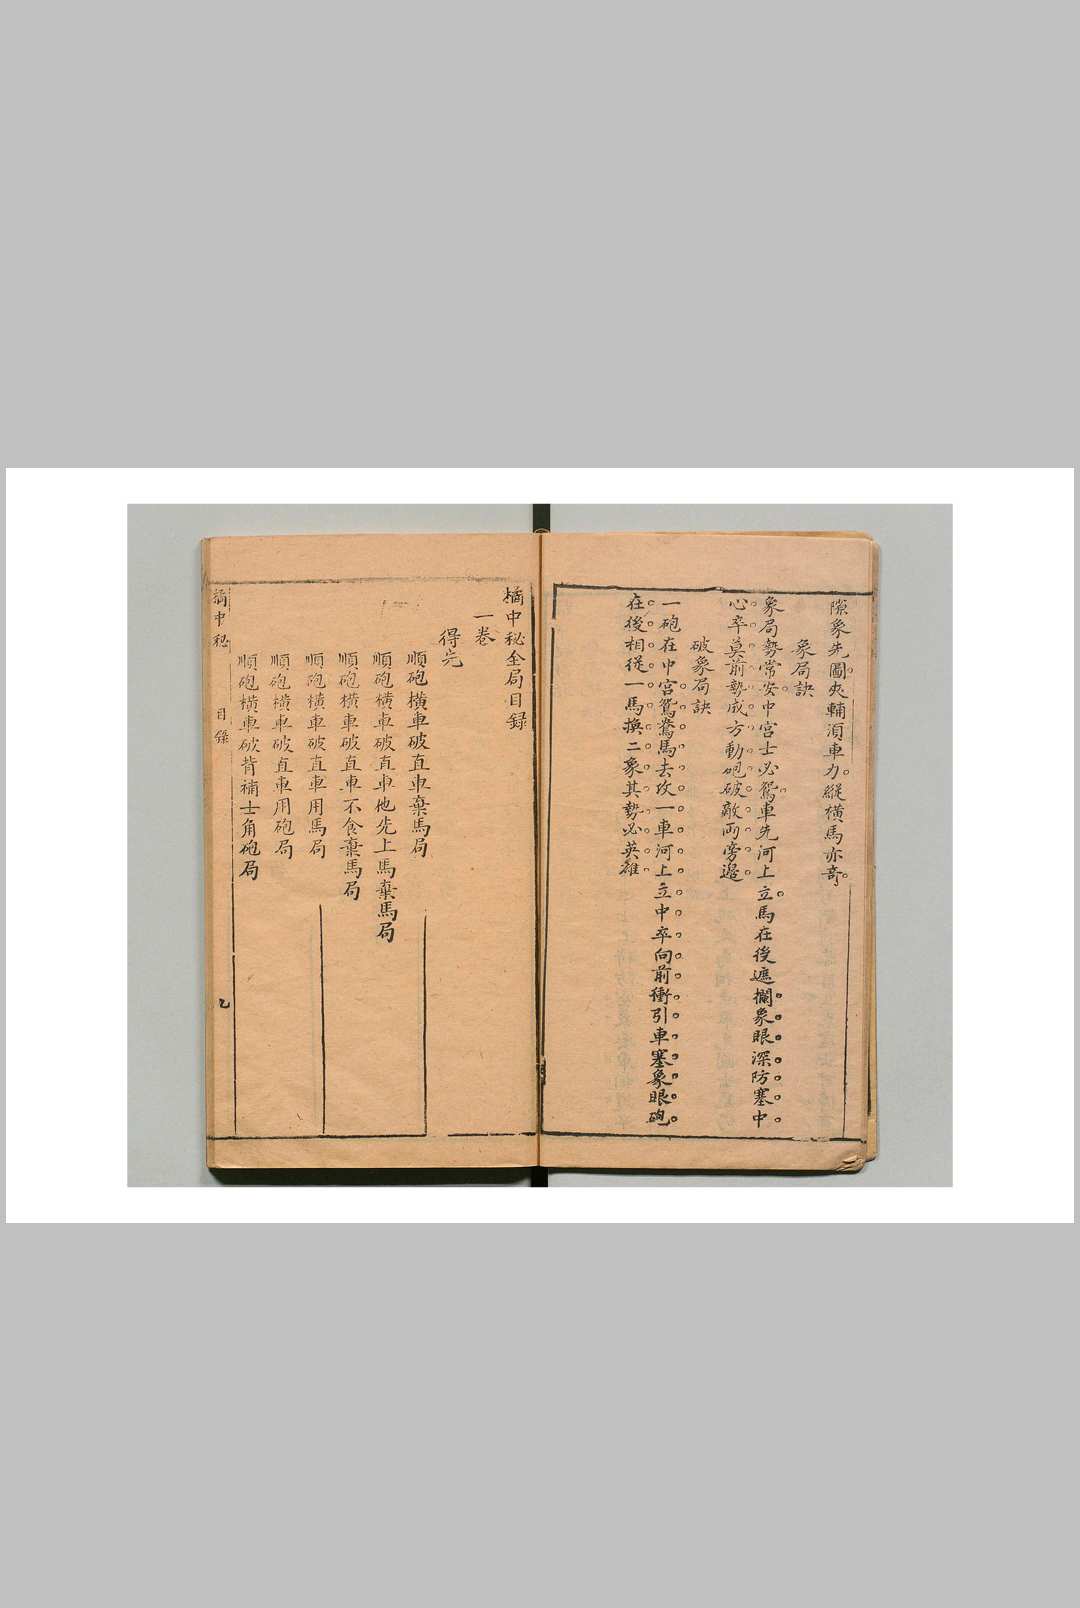 隙象先圖夾輔須車力縱橫馬亦竒
象局訣
象局勢常安中宫士必鴛車先河上立馬在後遮攔象眼深防塞中
心卒莫前勢成方動砲破敵両旁邉
破象局訣
一砲在中宫鴛鴦馬去攻一車河上立中卒向前衝引車塞象眼砲
在後相從一馬換二象其勢必英雄
橘中秘全局目録
一卷
得先
順砲橫車破直車棄馬局
順砲橫車破直車他先上馬棄馬局
順砲橫車破直車不食棄馬局
順砲橫車破直車用馬局
順砲橫車破直車用砲局
順砲橫車破背補士角砲局
橘中秘 目錄 乙